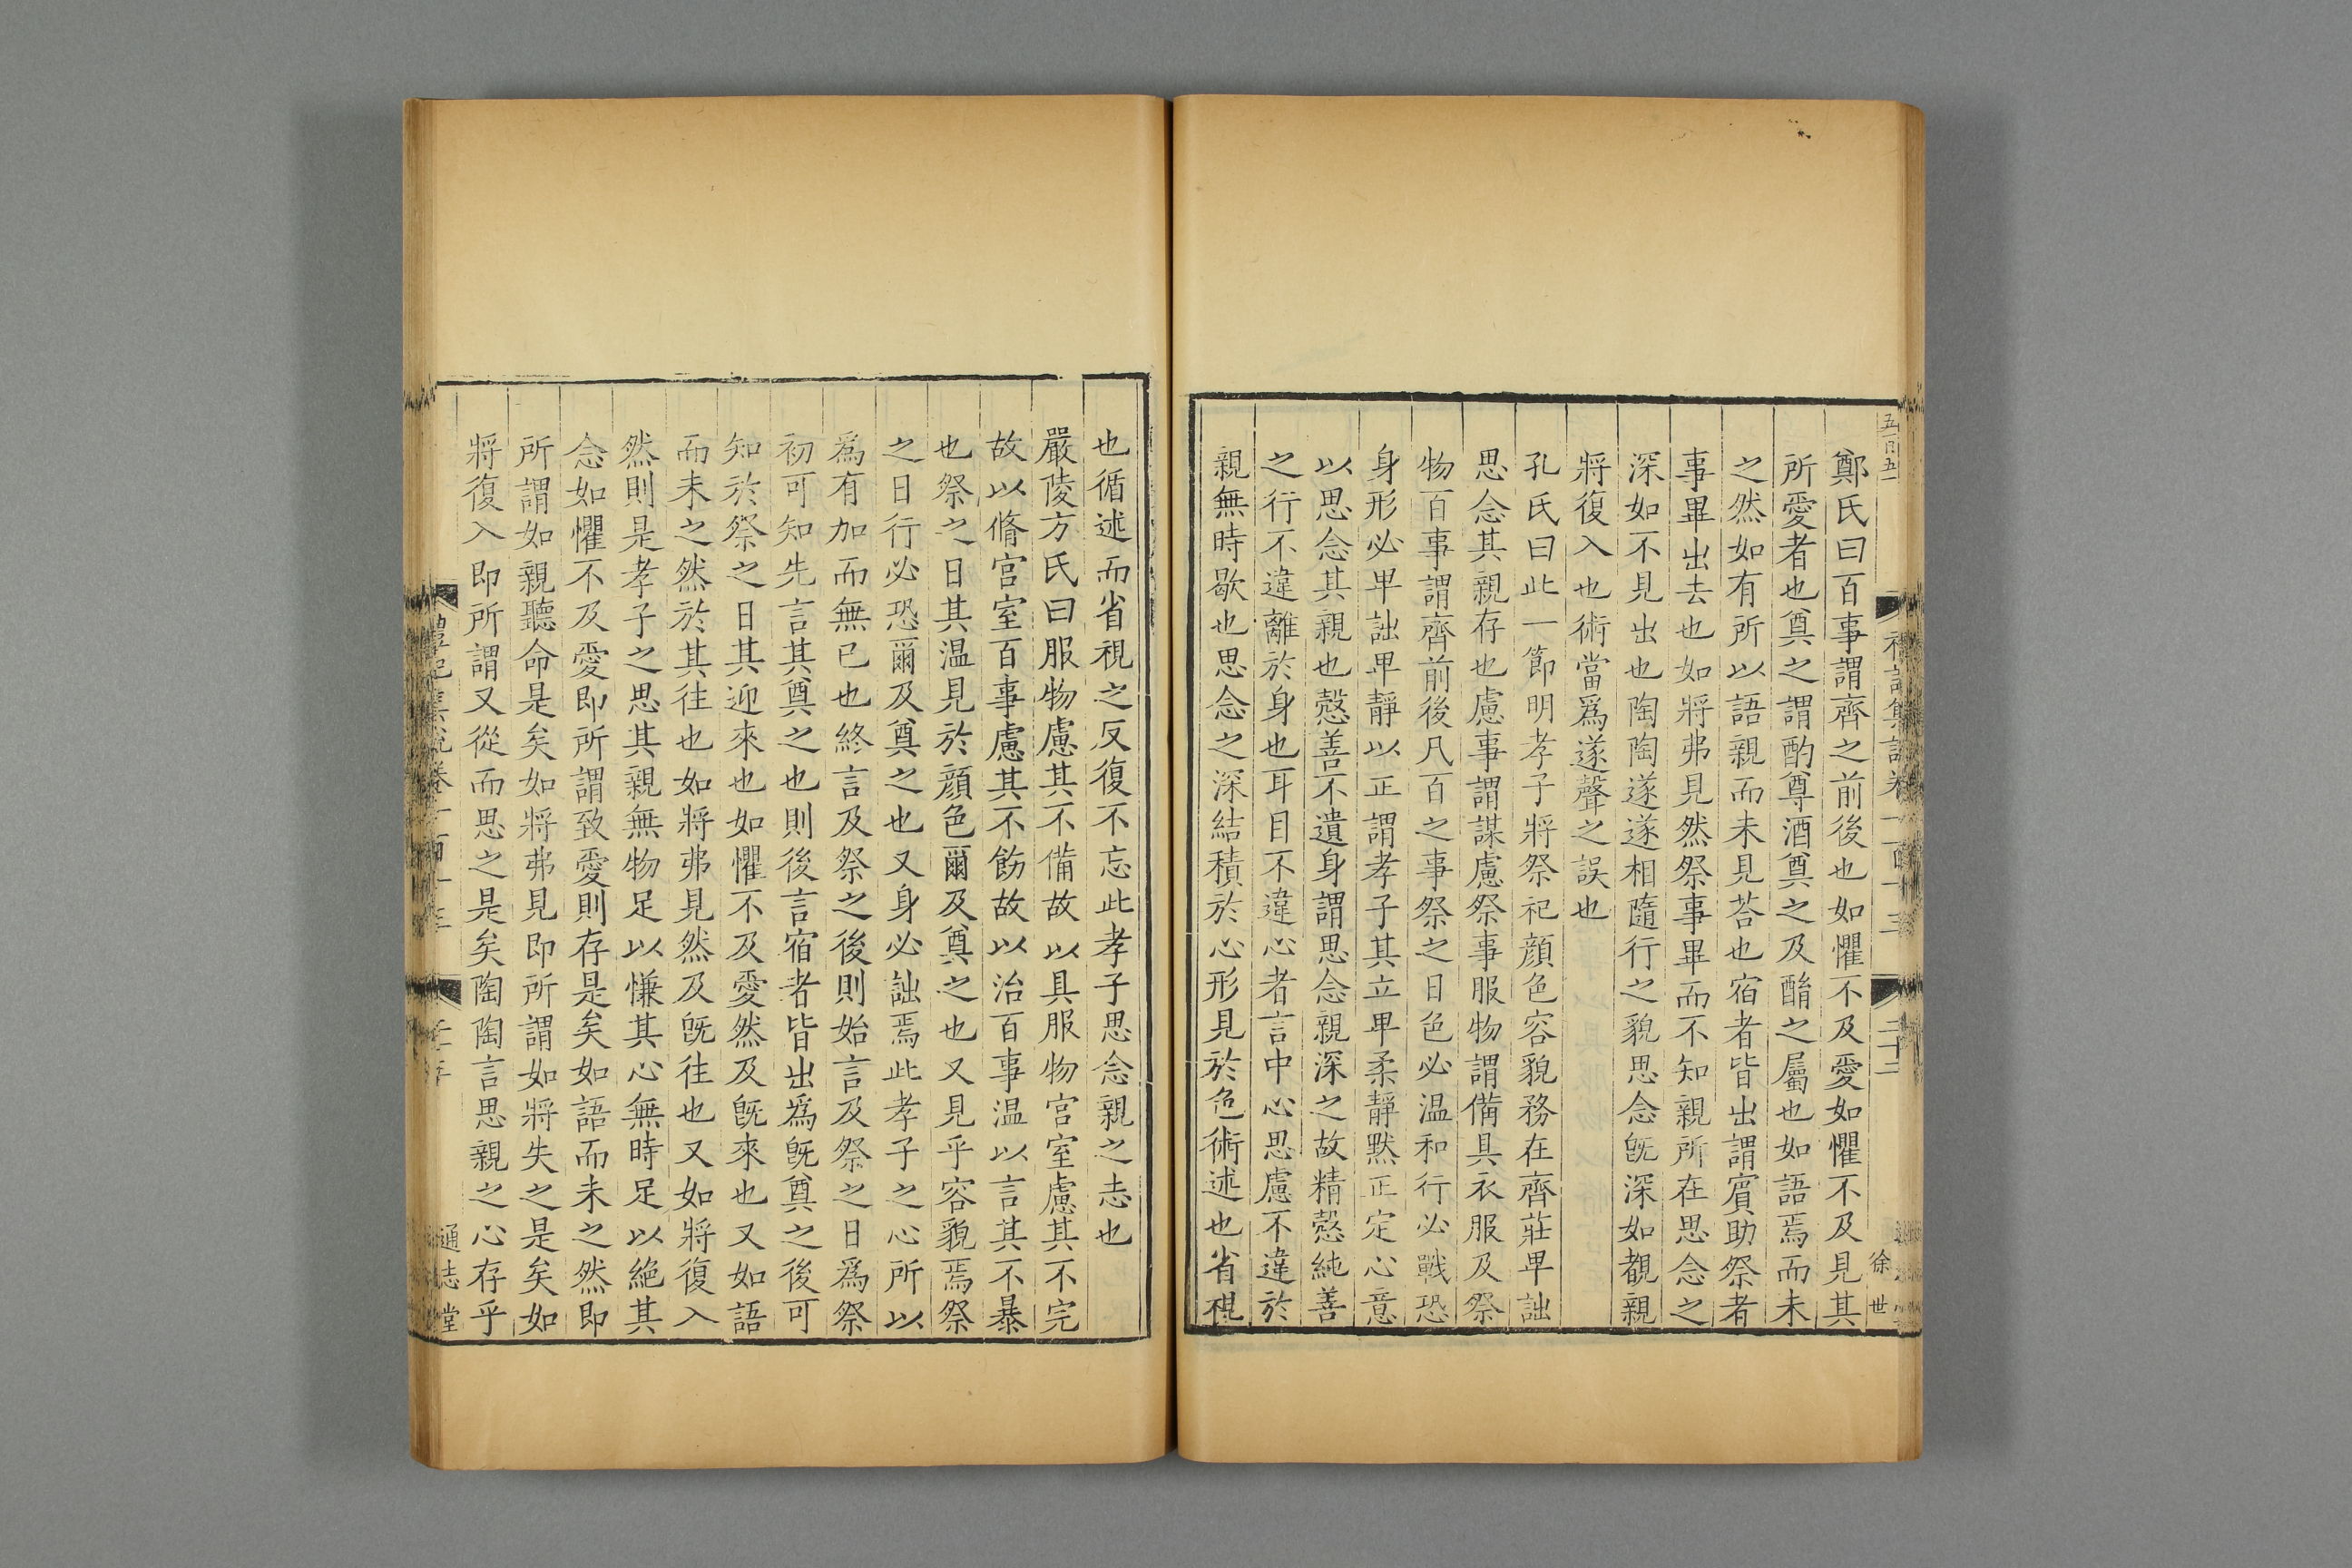 鄭氏曰百事謂齊之前後也如懼不及愛如懼不及見其
所愛者也奠之謂酌尊酒奠之及酳之屬也如語焉而未
之然如有所以語親而未見荅也宿者皆出謂賔助祭者
事畢出去也如將弗見然祭事畢而不知親所在思念之
深如不見出也陶陶遂遂相隨行之貌思念旣深如覩親
將復入也術當爲遂聲之誤也
孔氏曰此一節明孝子將祭祀顔色容貌務在齊莊卑詘
思念其親存也慮事謂謀慮祭事服物謂備具衣服及祭
物百事謂齊前後凡百之事祭之日色必温和行必戰恐
身形必卑詘卑靜以正謂孝子其立卑柔靜黙正定心意
以思念其親也慤善不遺身謂思念親深之故精慤純善
之行不違離於身也耳目不違心者言中心思慮不違於
親無時歇也思念之深結積於心形見於色術述也省視
也循述而省視之反復不忘此孝子思念親之志也
嚴陵方氏曰服物慮其不備故以具服物宫室慮其不完
故以脩宫室百事慮其不飭故以治百事温以言其不暴
也祭之日其温見於顔色爾及奠之也又見乎容貌焉祭
之日行必恐爾及奠之也又身必詘焉此孝子之心所以
爲有加而無已也終言及祭之後則始言及祭之日爲祭
初可知先言其奠之也則後言宿者皆出爲旣奠之後可
知於祭之日其迎來也如懼不及愛然及旣來也又如語
而未之然於其往也如將弗見然及旣往也又如將復入
然則是孝子之思其親無物足以慊其心無時足以絶其
念如懼不及愛即所謂致愛則存是矣如語而未之然即
所謂如親聽命是矣如將弗見即所謂如將失之是矣如
將復入即所謂又從而思之是矣陶陶言思親之心存乎
通志堂
二十二
徐世